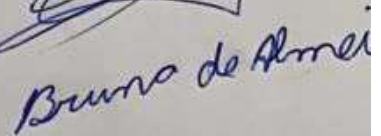 Bruno de Almei